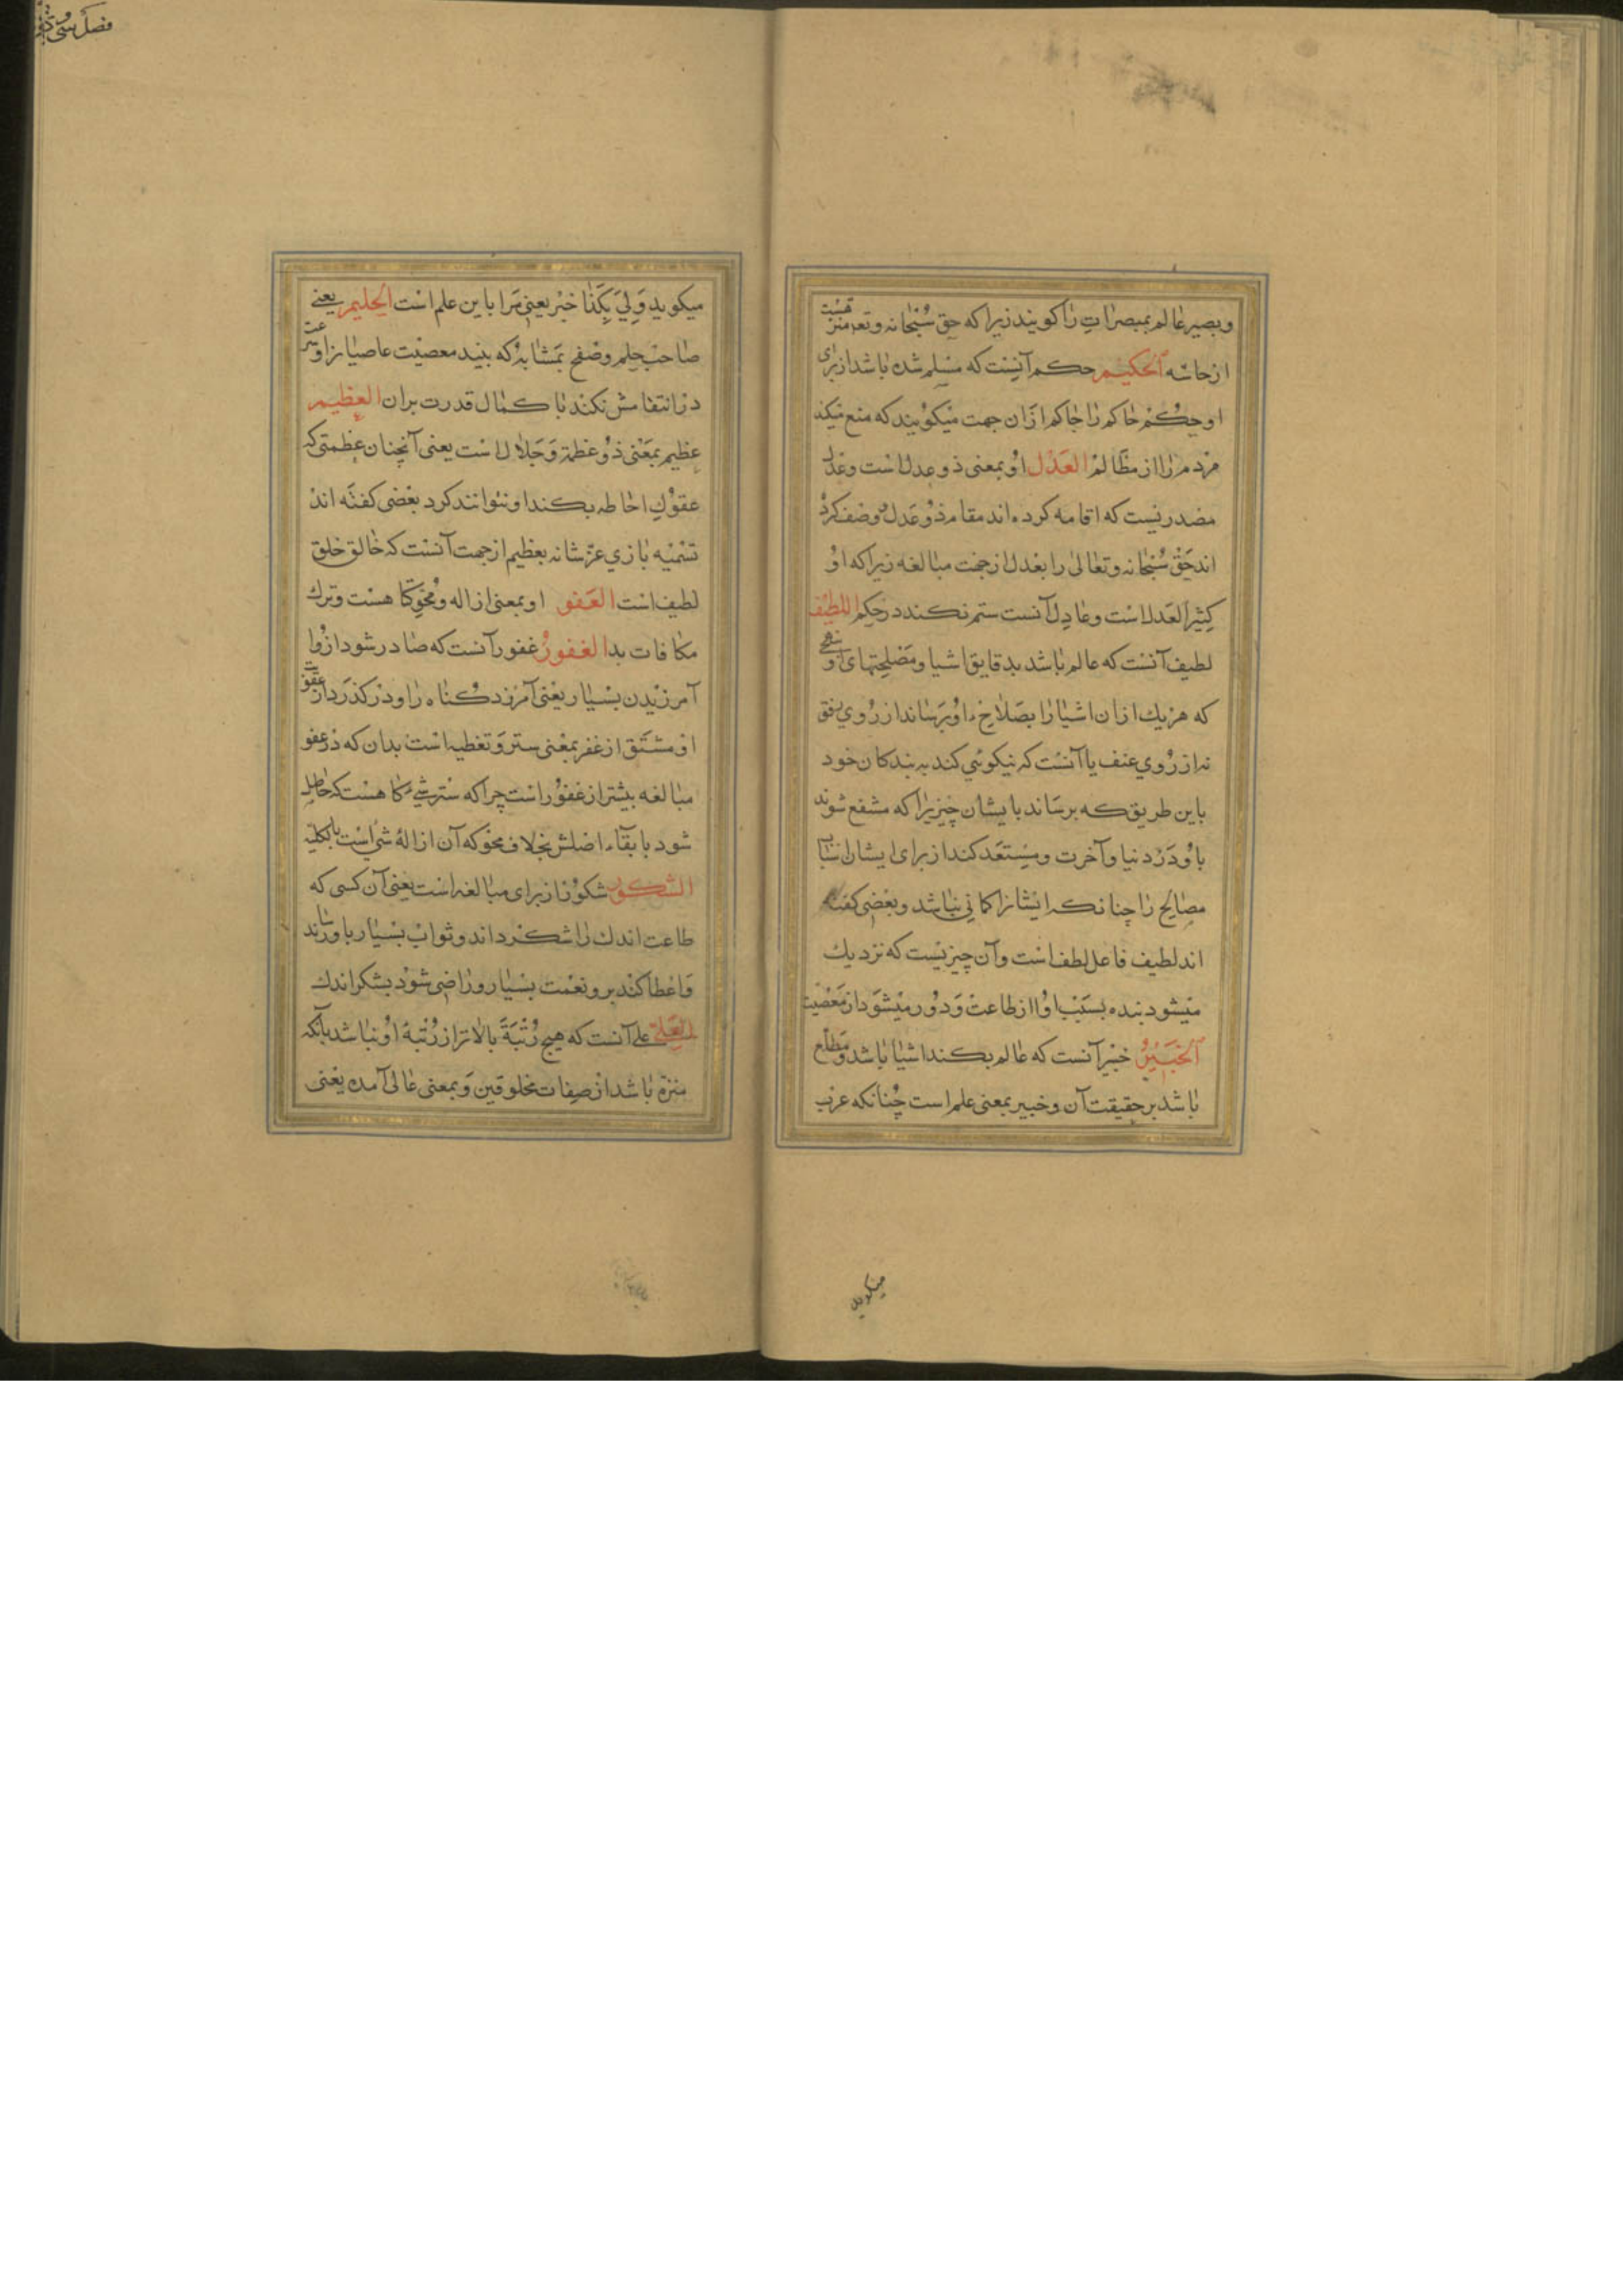 وبصیر عالم بمبصرات را کویند زیرا که حق سُبْحانه وتع منزه است
از حاسّه الحکیم حکم آنست که مسلم شده باشد از برای
او حکم حاکم را حاکم ازان جهت میکویند که منع میکند
مردم را از مظالم العدل او بمعنی ذو عدل است وعدل
مصدریست که اقامه کرده اند مقام ذو عدل وصف کرده
اند حق سُبحانه وتعالی را بعدل از جهت مبالغه زیرا که او
کثیر العدل است وعادل آنست ستم نکند در حکم اللطیف
لطیف آنست که عالم باشد بدقایق اشیا ومصلحتهای او
که هر یک ازان اشیا را بصلاح او برساند از روی رفق
نه از روی عنف یا آنست که نیکوئی کند به بندکان خود
باین طریق که برساند بایشان چیزیرا که مشفع شوند
باو در دنیا وآخرت ومستعد کند از برای ایشان
مصالح را چنانکه ایشانرا کمانی نباشد وبعضی کفته
اند لطیف فاعل لطف است وآن چیزیست که نزدیک
میشود بنده بسبب او از طاعت ودور میشود از معصیت
الخبیر خبیر آنست که عالم بکنه اشیا باشد ومطلع
باشد بر حقیقت آن وخبیر بمعنی علم است چنانکه عرب
میکوید
فصل سی و
میکوید وَلِیَ بِکَذا خبر یعنی مرا باین علم است الحلیم یعنی
صاحب حلم وصفح بمثابۀ که بیند معصیت عاصیانرا و
در انتقامش نکند با کمال قدرت بران العظیم
عظیم بمعنی ذو عظمة وجلال است یعنی آنچنان عظمتی که
عقول احاطه بکنه او نتوانند کرد بعضی کفته اند
تسمیه باری عزّ شانه بعظیم از جهت آنست که خالق خلق
لطیف است العفو او بمعنی ازاله ومحو کناهست وترک
مکافات بد الغفور غفور آنست که صادر شود ازو
آمرزیدن بسیار یعنی آمرزد کناه را ودر کذرد از عقوبت
او مشتق از غفر بمعنی ستر وتغطیه است بدان که در عفو
مبالغه بیشتر از غفور است چرا که ستر شیء کاهست که حاصل
شود با بقاء اصلش بخلاف محو که آن ازالۀ شیٔ است بالکلیه
الشکور شکور از برای مبالغه است یعنی آن کسی که
طاعت اندک را شکر داند وثواب بسیار باو رساند
واعطا کند برو نعمت بسیار وراضی شود بشکر اندک
العلی علی آنست که هیچ رُتْبَةً بالاتر از رُتبة او نباشد بآنکه
منزه باشد از صفات مخلوقین وبمعنی عالی آمده یعنی